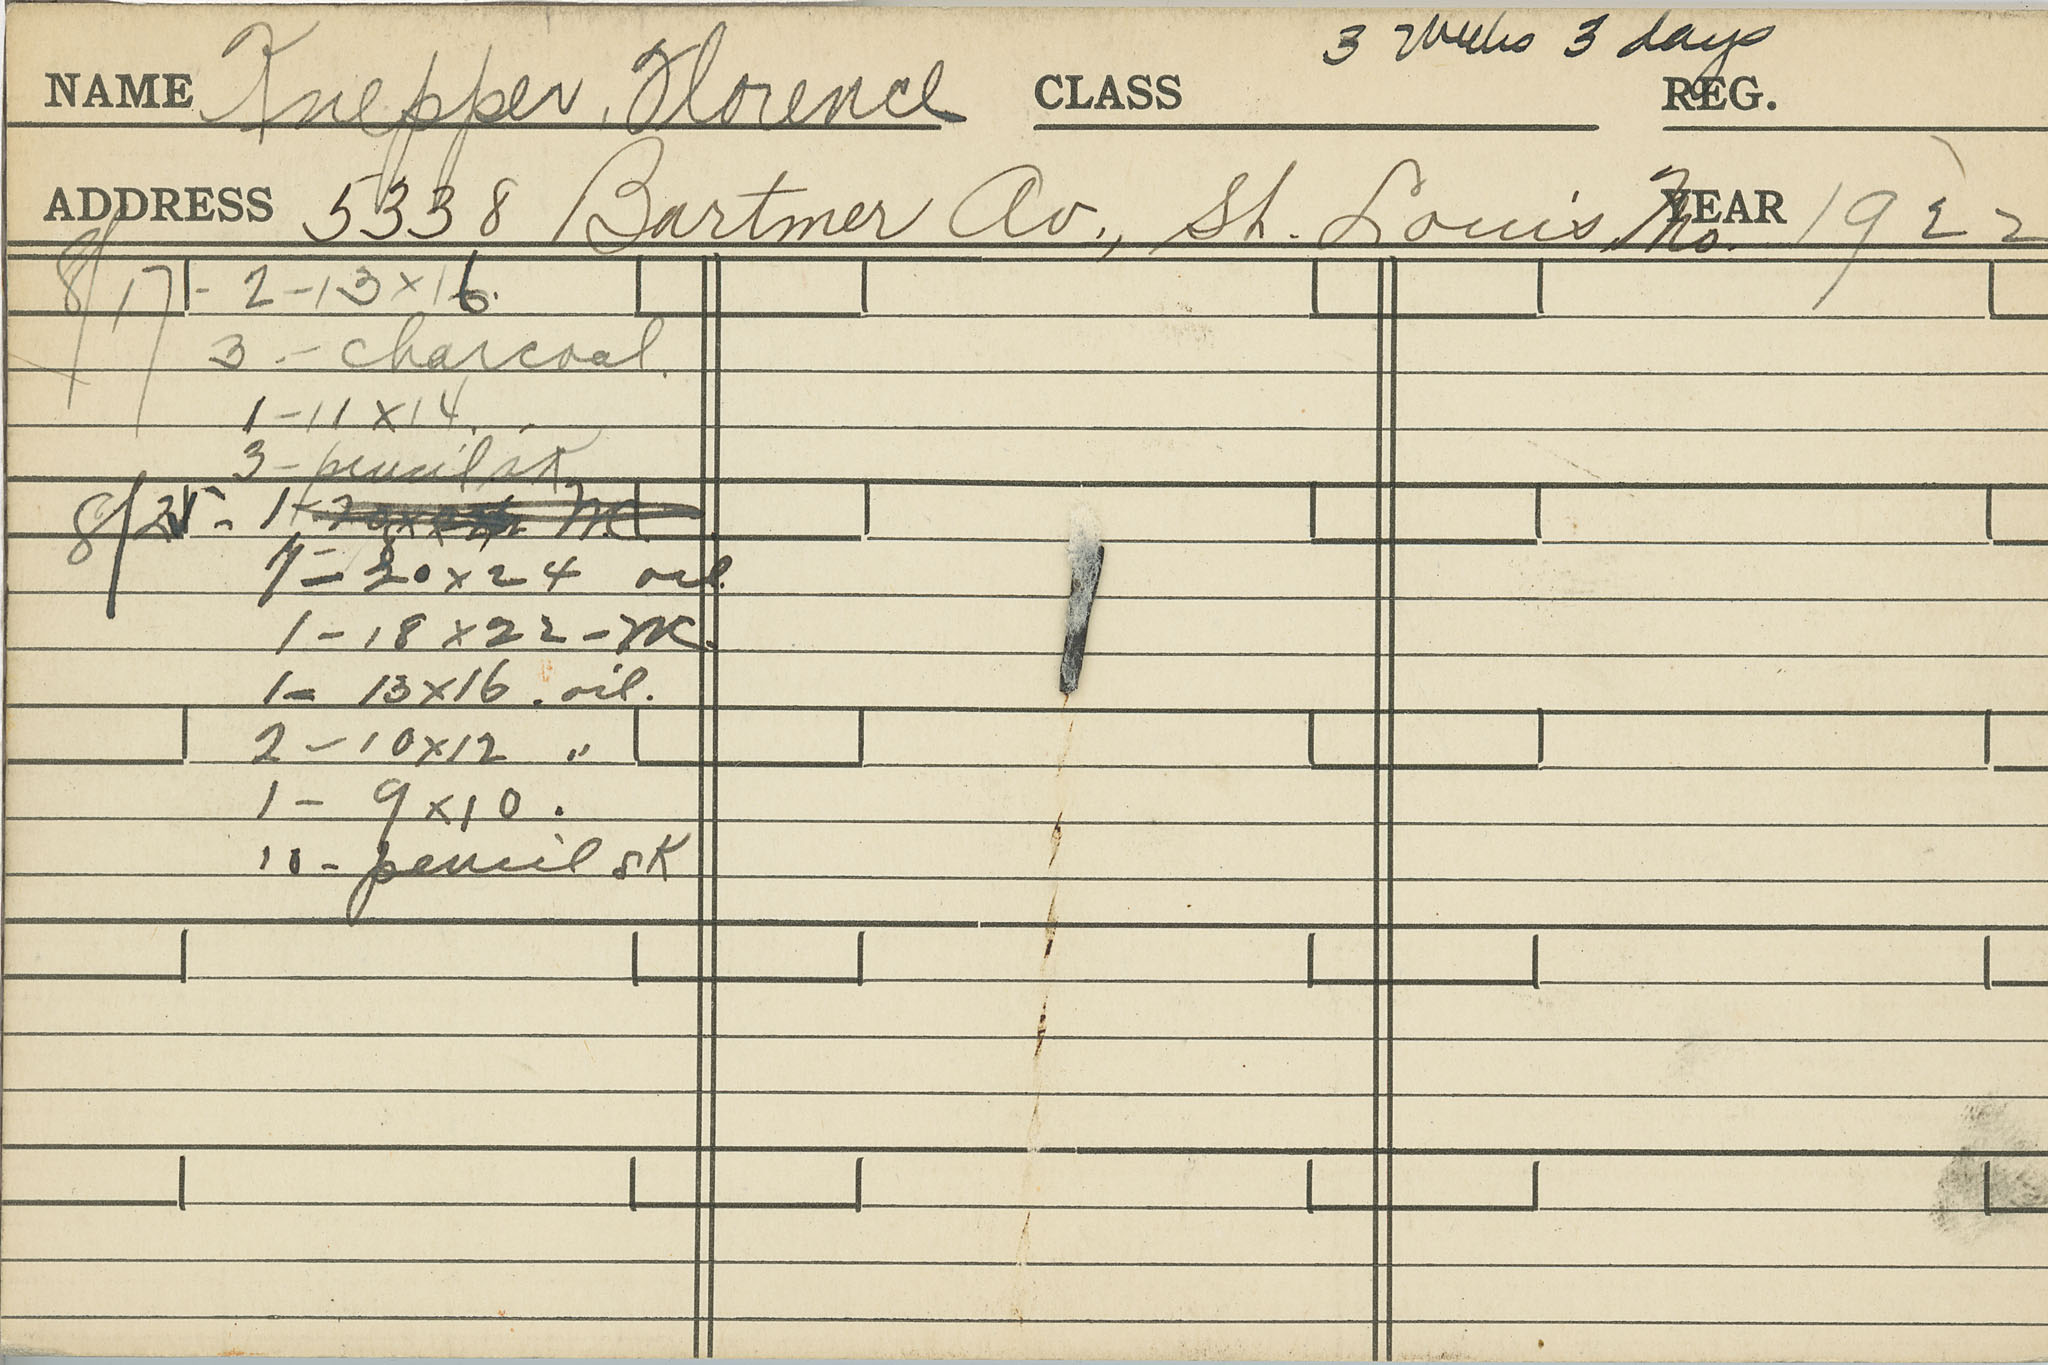 3 Weeks 3 days
NAME Knepper, Florence CLASS REG.
ADDRESS 5338 Bartmer Av., St. Louis Mo. YEAR 1922
8/17 - 2 - 13 x 16.
3 - charcoal.
1 - 11 x 14.
3 - pencil sk
8/25 - 1
7 - 20 x 24 oil
1 - 18 x 22 -
1 - 13 x 16 . oil.
2 - 10 x 12 "
1 - 9 x 10 .
10 - pencil sk